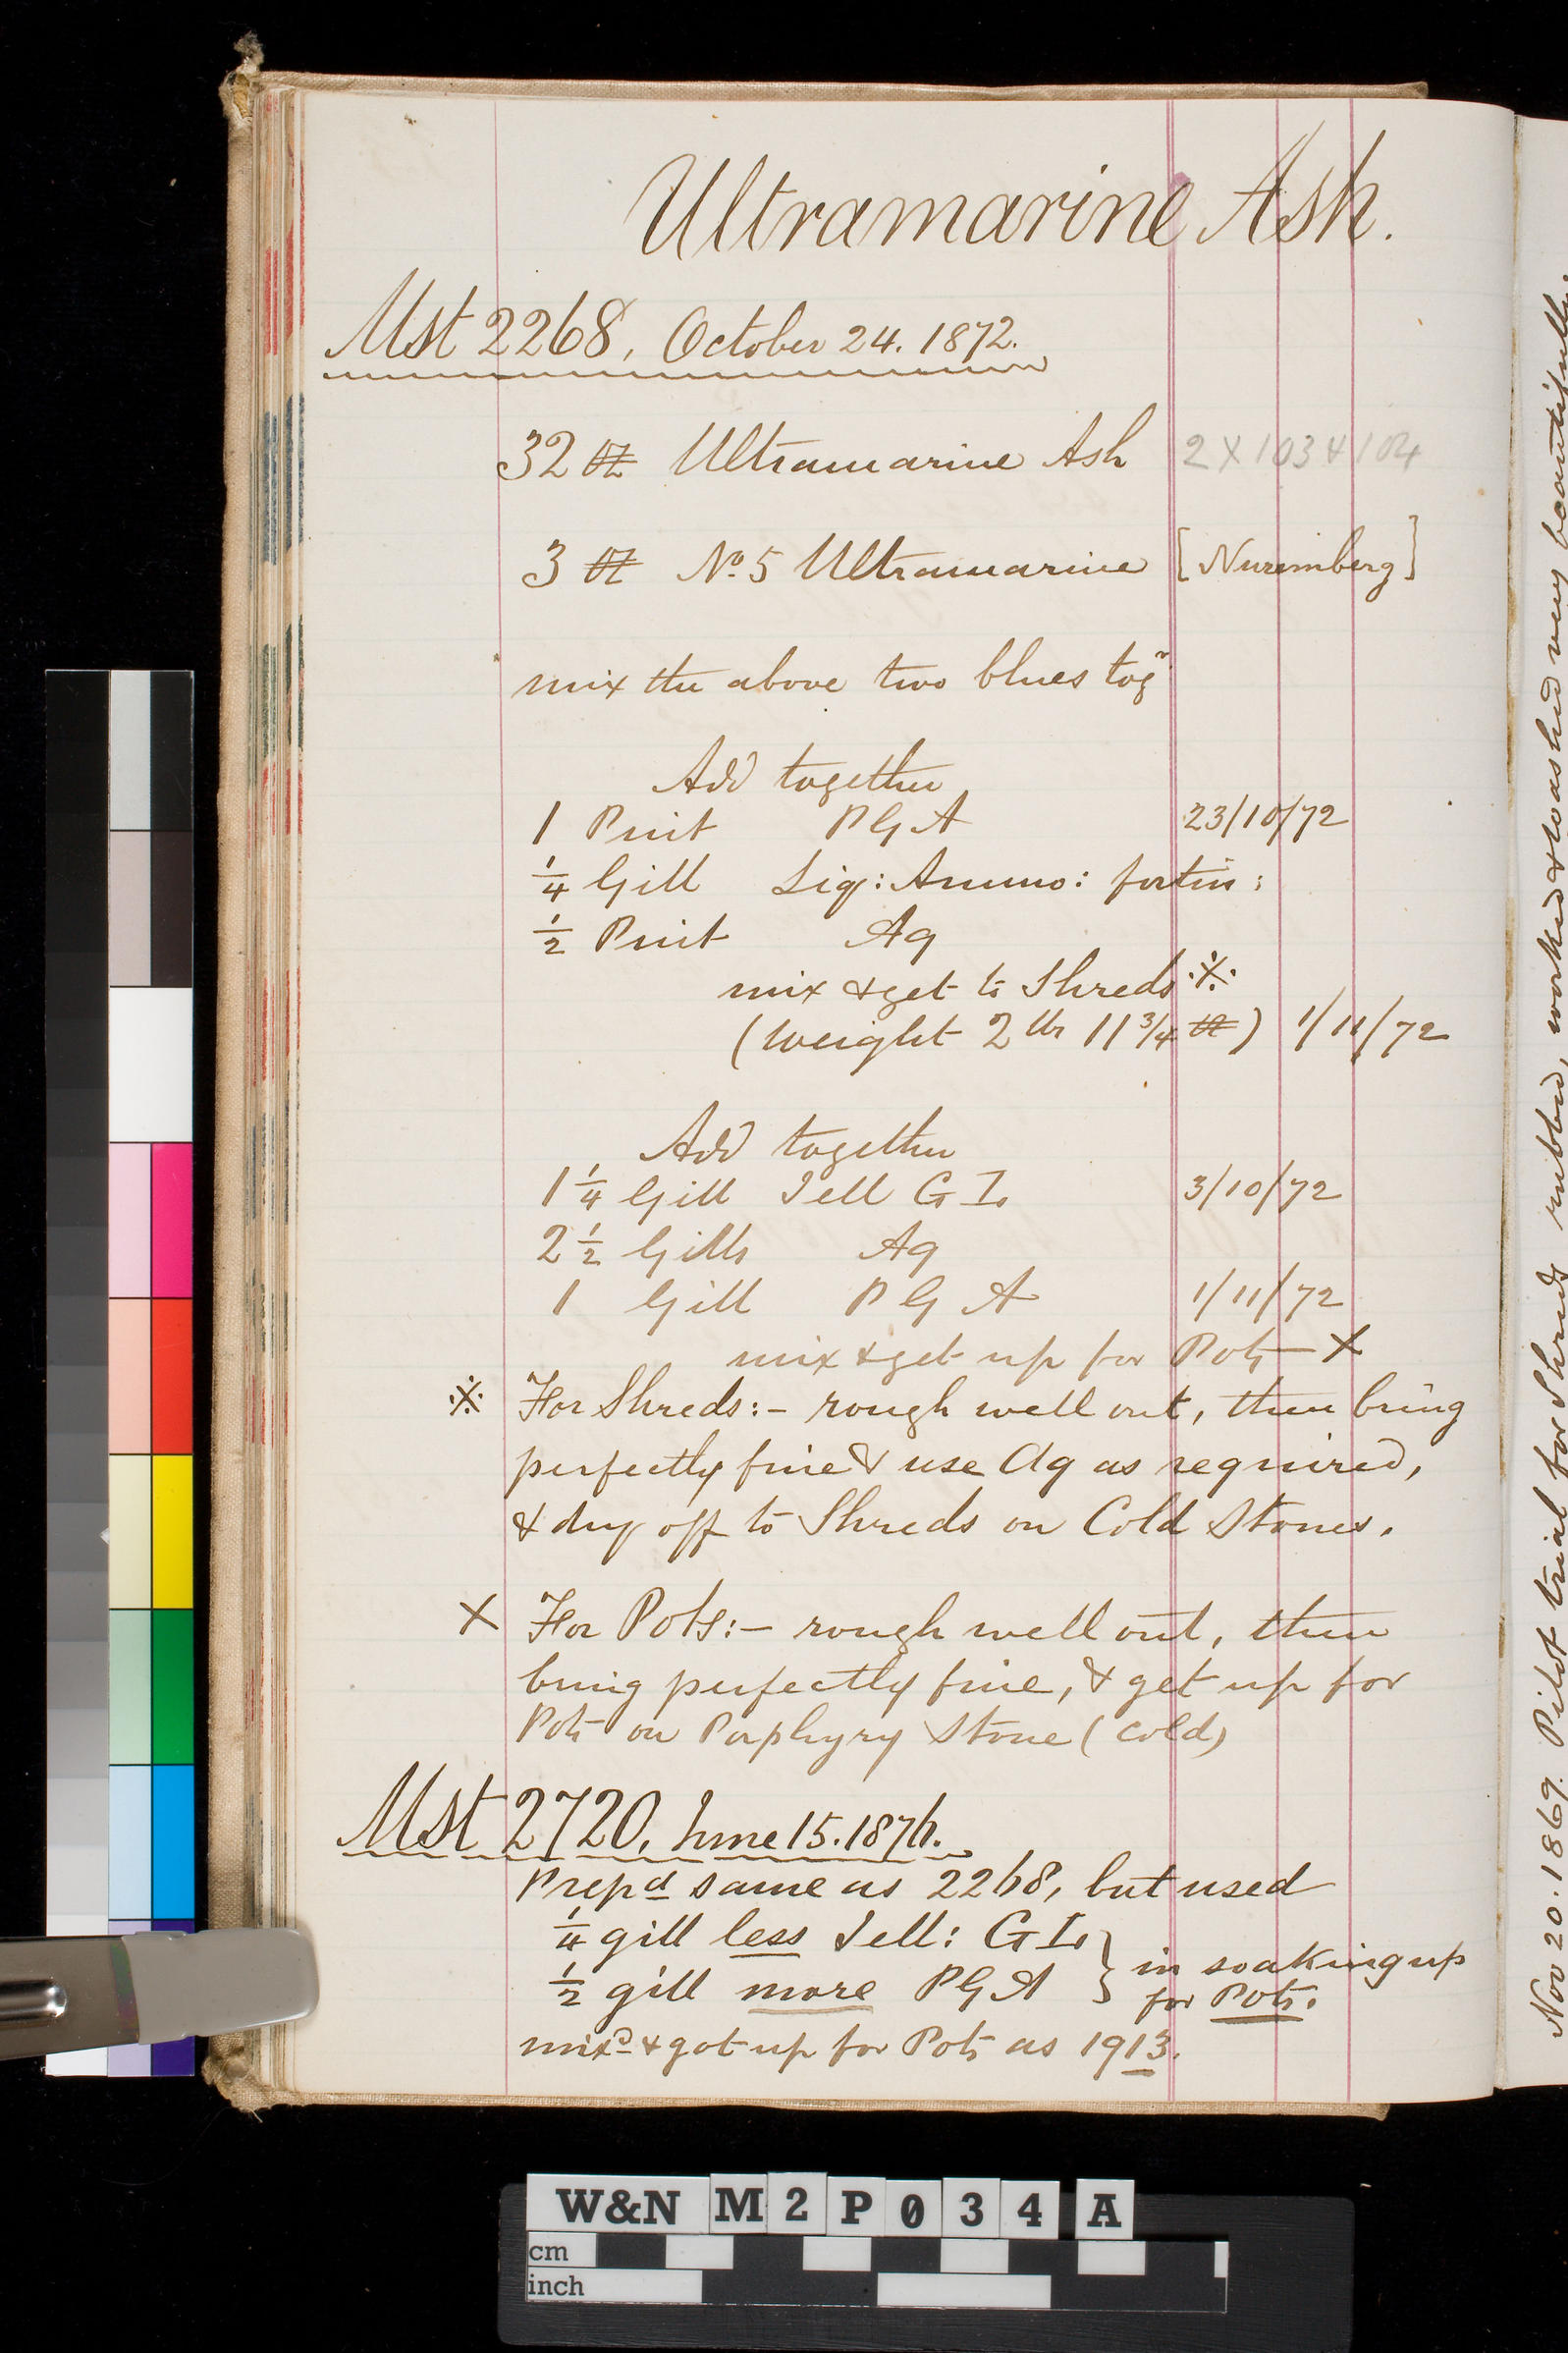 Ultramarine Ash.
Mst 2268, October 24. 1872.
32 oz Ultramarine Ash 2 X 103 & 104
3 oz No. 5 Ultramarine [Nuremberg]
mix the above two blues togr
Add together
1 Pint P G A 23/10/72
1/4 Gill Liq: Ammo: fortis:
1/2 Pint Aq
mix & get to Shreds ※
(weight 2 lbs 11 3/4 oz) 1/11/72
Add together
1 1/4 Gill Jell G I. 3/10/72
2 1/2 Gills Aq
1 Gill P G A 1/11/72
mix & get up for Pots X
※ For Shreds:- rough well out, then bring
perfectly fine & use Aq as required,
& dry off to Shreds on Cold Stones.
X For Pots:- rough well out, then
bring perfectly fine, & get up for
Pots on Porphyry Stone (cold)
Mst 2720, June 15. 1876.
Prepd same as 2268, but used
1/4 gill less Jell: G I. } in soaking up
1/2 gill more P G A } for Pots.
mixd & got up for Pots as 1913.
Nov 20. 1869. Pilot trial for Shreds rubbed, worked & washed very beautifully.
W&N M2P034A
cm
inch